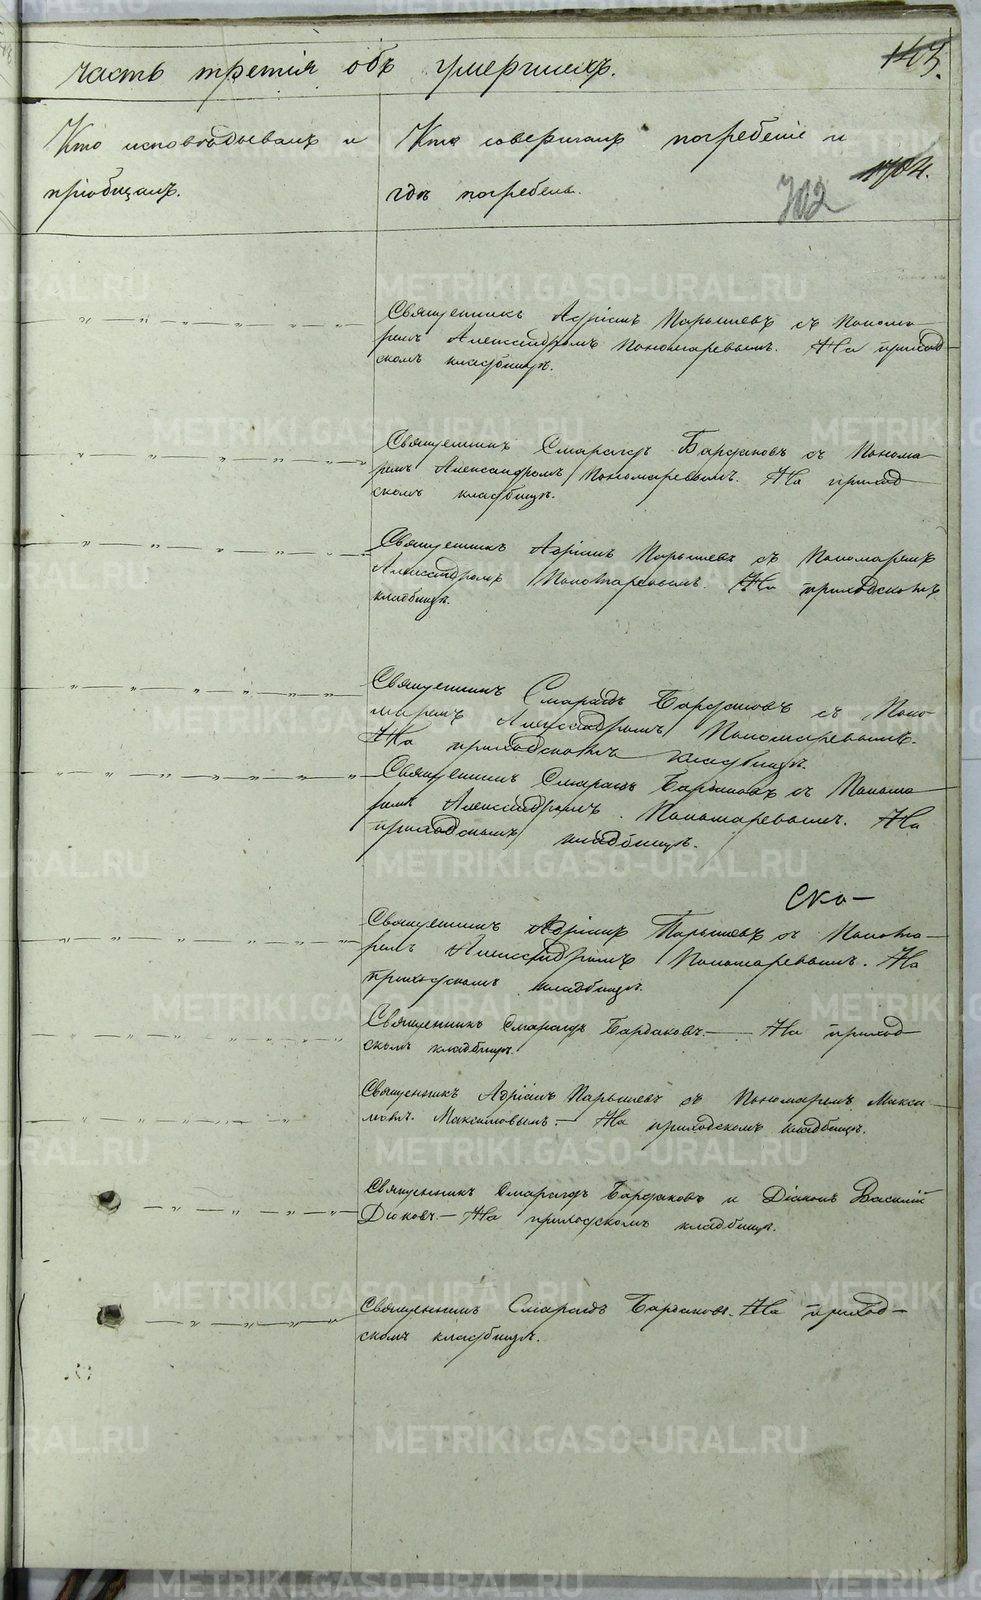 часть третія объ умершихъ.
143.
Кто исповѣдывалъ и
пріобщалъ.
Кто совершалъ погребеніе и
гдѣ погребены.
1704.
702
Священникъ Адріанъ Парышевъ съ Понома-
ремъ Александромъ Пономаревымъ. На приход-
скомъ кладбищѣ.
Священникъ Смарагдъ Бардаковъ съ Понома-
ремъ Александромъ Пономаревымъ. На приход-
скомъ кладбищѣ.
Священникъ Адріанъ Парышевъ съ Пономаремъ
Александромъ Пономаревымъ. На приходскомъ
кладбищѣ.
Священникъ Смарагдъ Бардаковъ съ Поно-
маремъ Александромъ Пономаревымъ.
На приходскомъ кладбищѣ.
Священникъ Смарагдъ Бардаковъ съ Понома-
ремъ Александромъ Пономаревымъ. На
приходскомъ кладбищѣ.
ско-
Священникъ Адріанъ Парышевъ съ Понома-
ремъ Александромъ Пономаревымъ. На
приходскомъ кладбищѣ.
Священникъ Смарагдъ Бардаковъ.— На приход-
скомъ кладбищѣ.
Священникъ Адріанъ Парышевъ съ Пономаремъ
Максимовымъ.— На приходскомъ кладбищѣ.
Священникъ Смарагдъ Бардаковъ и Діаконъ Василій
Дюковъ.— На приходскомъ кладбищѣ.
Священникъ Смарагдъ Бардаковъ. На приход-
скомъ кладбищѣ.
METRIKI.GASO-URAL.RU